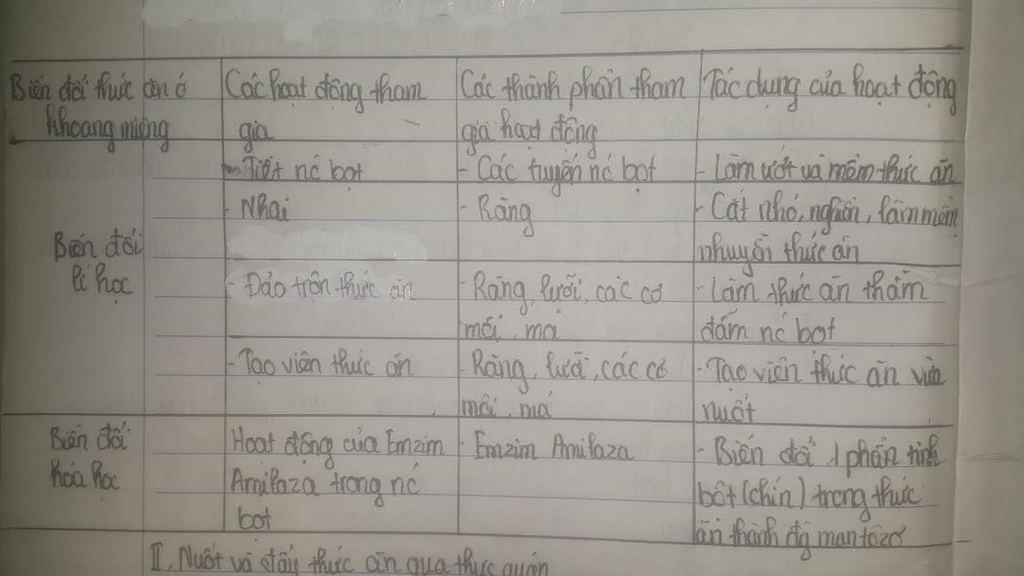 Biến đổi thức ăn ở khoang miệng
Các hoạt động tham gia
Các thành phần tham gia hoạt động
Tác dụng của hoạt động
Biến đổi lí học
- Tiết nc bọt
- Các tuyến nc bọt
- Làm ướt và mềm thức ăn
- Nhai
- Răng
- Cắt nhỏ, nghiền, làm mềm
nhuyễn thức ăn
- Đảo trộn thức ăn
- Răng, lưỡi, các cơ
môi, má
- Làm thức ăn thấm
đẫm nc bọt
- Tạo viên thức ăn
- Răng, lưỡi, các cơ
môi, má
- Tạo viên thức ăn vừa
nuốt
Biến đổi
hóa học
Hoạt động của Emzim
Amilaza trong nc
bọt
- Emzim Amilaza
- Biến đổi 1 phần tinh
bột (chín) trong thức
ăn thành đg mantôzơ
II, Nuốt và đẩy thức ăn qua thực quản